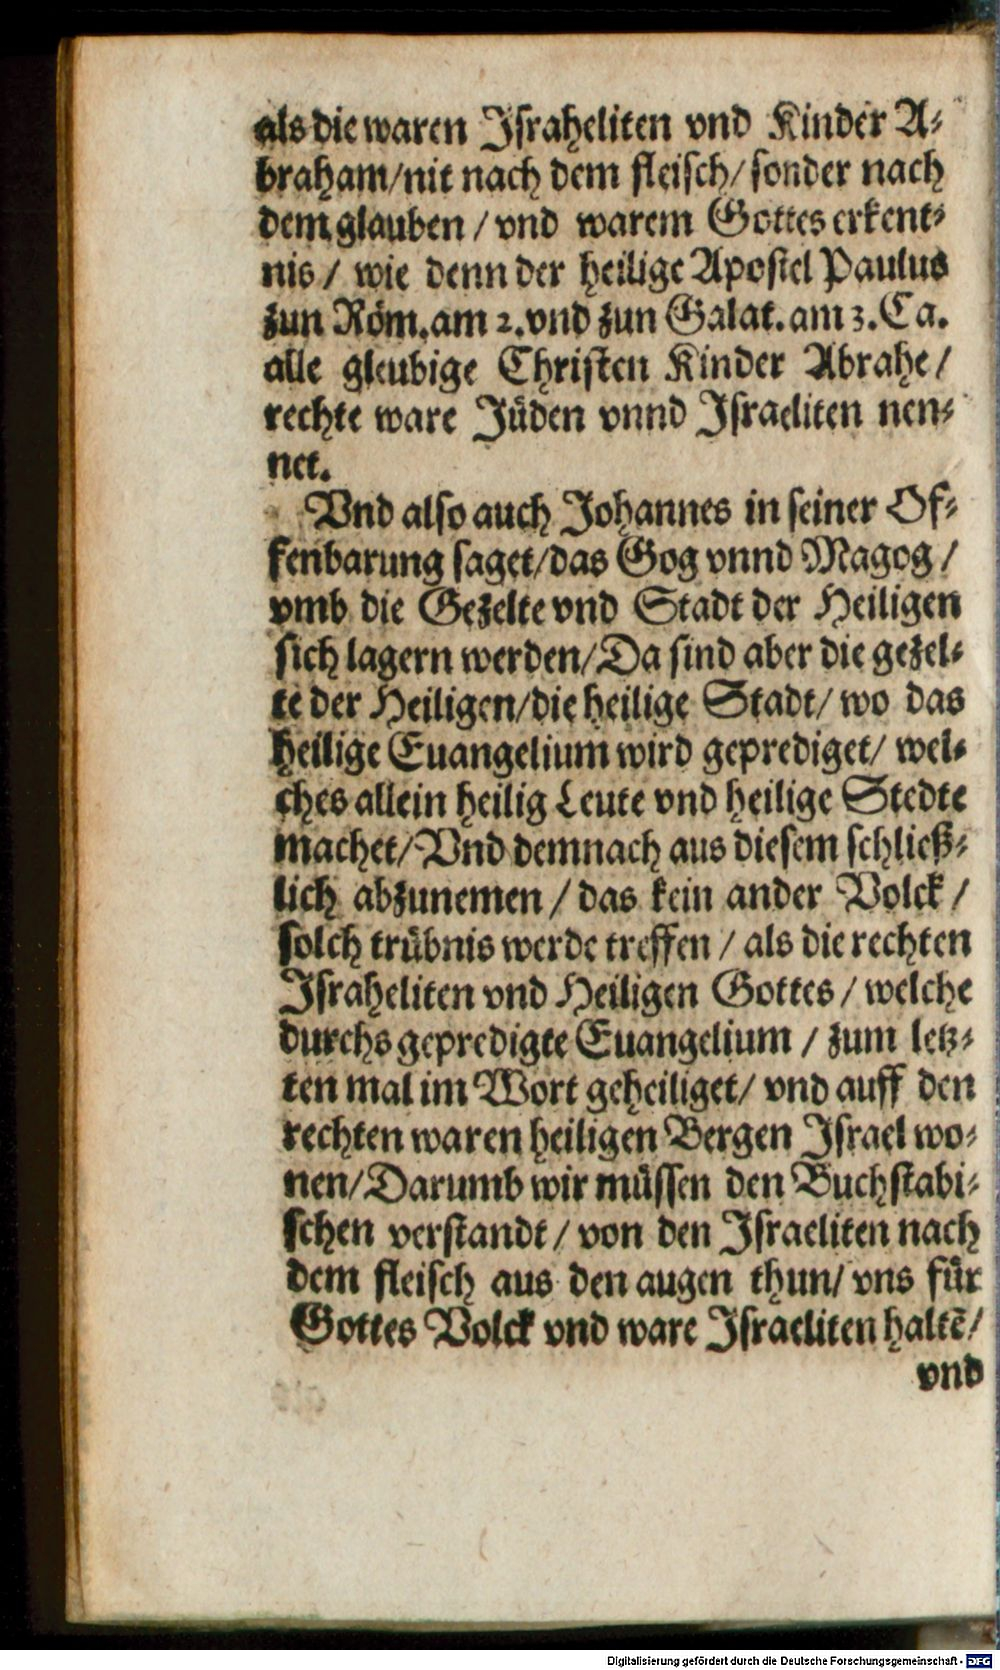 als die waren Israheliten vnd Kinder A⸗
braham/nit nach dem fleisch/ sonder nach
dem glauben / vnd warem Gottes erkent⸗
nis / wie denn der heilige Apostel Paulus
zun Röm. am 2. vnd zun Galat. am 3. Ca.
alle gleubige Christen Kinder Abrahe /
rechte ware Jüden vnnd Israeliten nen⸗
net.
Vnd also auch Johannes in seiner Of⸗
fenbarung saget/das Gog vnnd Magog /
vmb die Gezelte vnd Stadt der Heiligen
sich lagern werden/Da sind aber die gezel⸗
te der Heiligen/die heilige Stadt/ wo das
heilige Euangelium wird geprediget/ wel⸗
ches allein heilig Leute vnd heilige Stedte
machet/Vnd demnach aus diesem schließ⸗
lich abzunemen / das kein ander Volck /
solch trübnis werde treffen / als die rechten
Israheliten vnd Heiligen Gottes / welche
durchs gepredigte Euangelium / zum letz⸗
ten mal im Wort geheiliget/ vnd auff den
rechten waren heiligen Bergen Israel wo⸗
nen/Darumb wir müssen den Buchstabi⸗
schen verstandt / von den Israeliten nach
dem fleisch aus den augen thun/ vns für
Gottes Volck vnd ware Israeliten haltē/
vnd
Digitalisierung gefördert durch die Deutsche Forschungsgemeinschaft - DFG